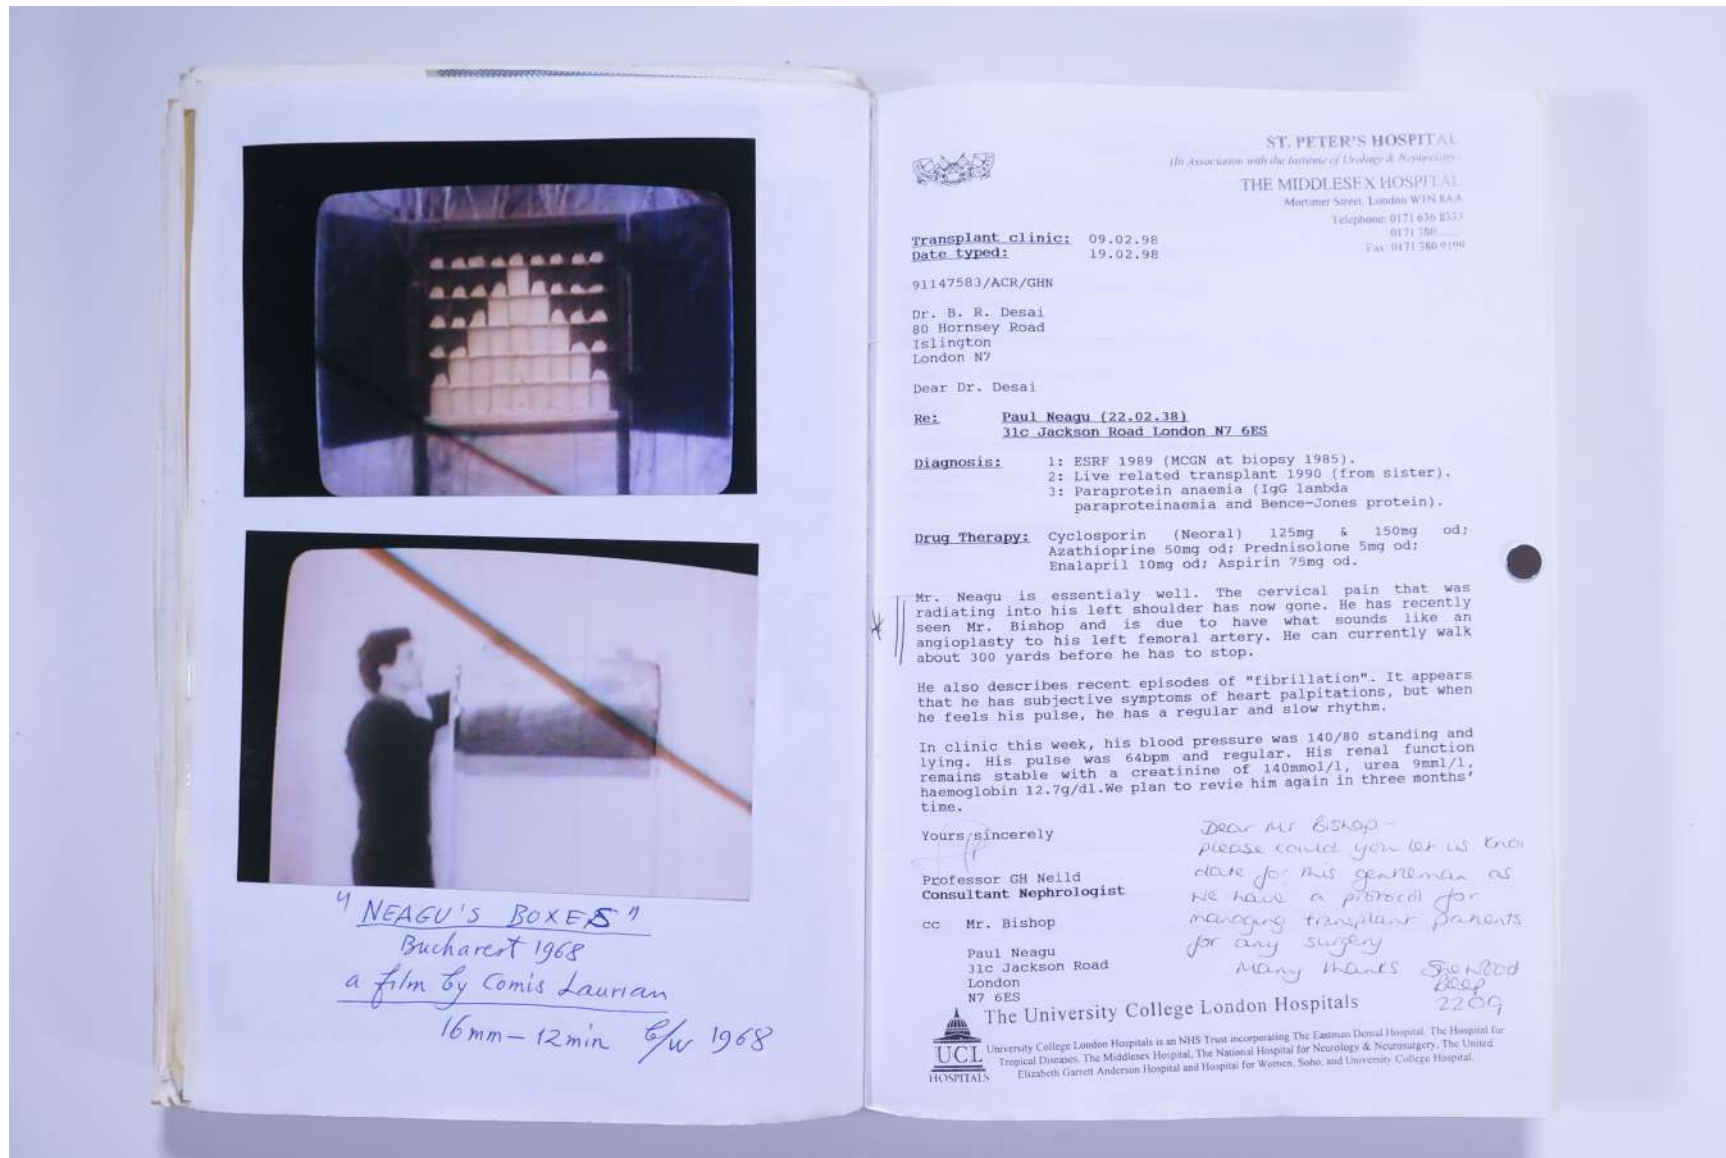 "NEAGU'S BOXES"
Bucharest 1968
a film by Comis Laurian
16mm – 12min b/w 1968
ST. PETER'S HOSPITAL
(In Association with the Institute of Urology & Nephrology
THE MIDDLESEX HOSPITAL
Mortimer Street, London W1N 8AA
Telephone: 0171 636 8333
0171 380
Fax: 0171 380 9199
Transplant clinic: 09.02.98
Date typed: 19.02.98
91147583/ACR/GHN
Dr. B. R. Desai
80 Hornsey Road
Islington
London N7
Dear Dr. Desai
Re: Paul Neagu (22.02.38)
31c Jackson Road London N7 6ES
Diagnosis: 1: ESRF 1989 (MCGN at biopsy 1985).
2: Live related transplant 1990 (from sister).
3: Paraprotein anaemia (IgG lambda
paraproteinaemia and Bence-Jones protein).
Drug Therapy: Cyclosporin (Neoral) 125mg & 150mg od;
Azathioprine 50mg od; Prednisolone 5mg od;
Enalapril 10mg od; Aspirin 75mg od.
Mr. Neagu is essentialy well. The cervical pain that was
radiating into his left shoulder has now gone. He has recently
seen Mr. Bishop and is due to have what sounds like an
angioplasty to his left femoral artery. He can currently walk
about 300 yards before he has to stop.
He also describes recent episodes of "fibrillation". It appears
that he has subjective symptoms of heart palpitations, but when
he feels his pulse, he has a regular and slow rhythm.
In clinic this week, his blood pressure was 140/80 standing and
lying. His pulse was 64bpm and regular. His renal function
remains stable with a creatinine of 140mmol/l, urea 9mml/l,
haemoglobin 12.7g/dl.We plan to revie him again in three months'
time.
Yours sincerely
Professor GH Neild
Consultant Nephrologist
cc Mr. Bishop
Paul Neagu
31c Jackson Road
London
N7 6ES
Dear Mr Bishop –
please could you let us know
date for this gentleman as
we have a protocol for
managing transplant patients
for any surgery
Many thanks
Beep
2209
The University College London Hospitals
UCL
HOSPITALS
University College London Hospitals is an NHS Trust incorporating The Eastman Dental Hospital, The Hospital for
Tropical Diseases, The Middlesex Hospital, The National Hospital for Neurology & Neurosurgery, The United
Elizabeth Garrett Anderson Hospital and Hospital for Women, Soho, and University College Hospital.